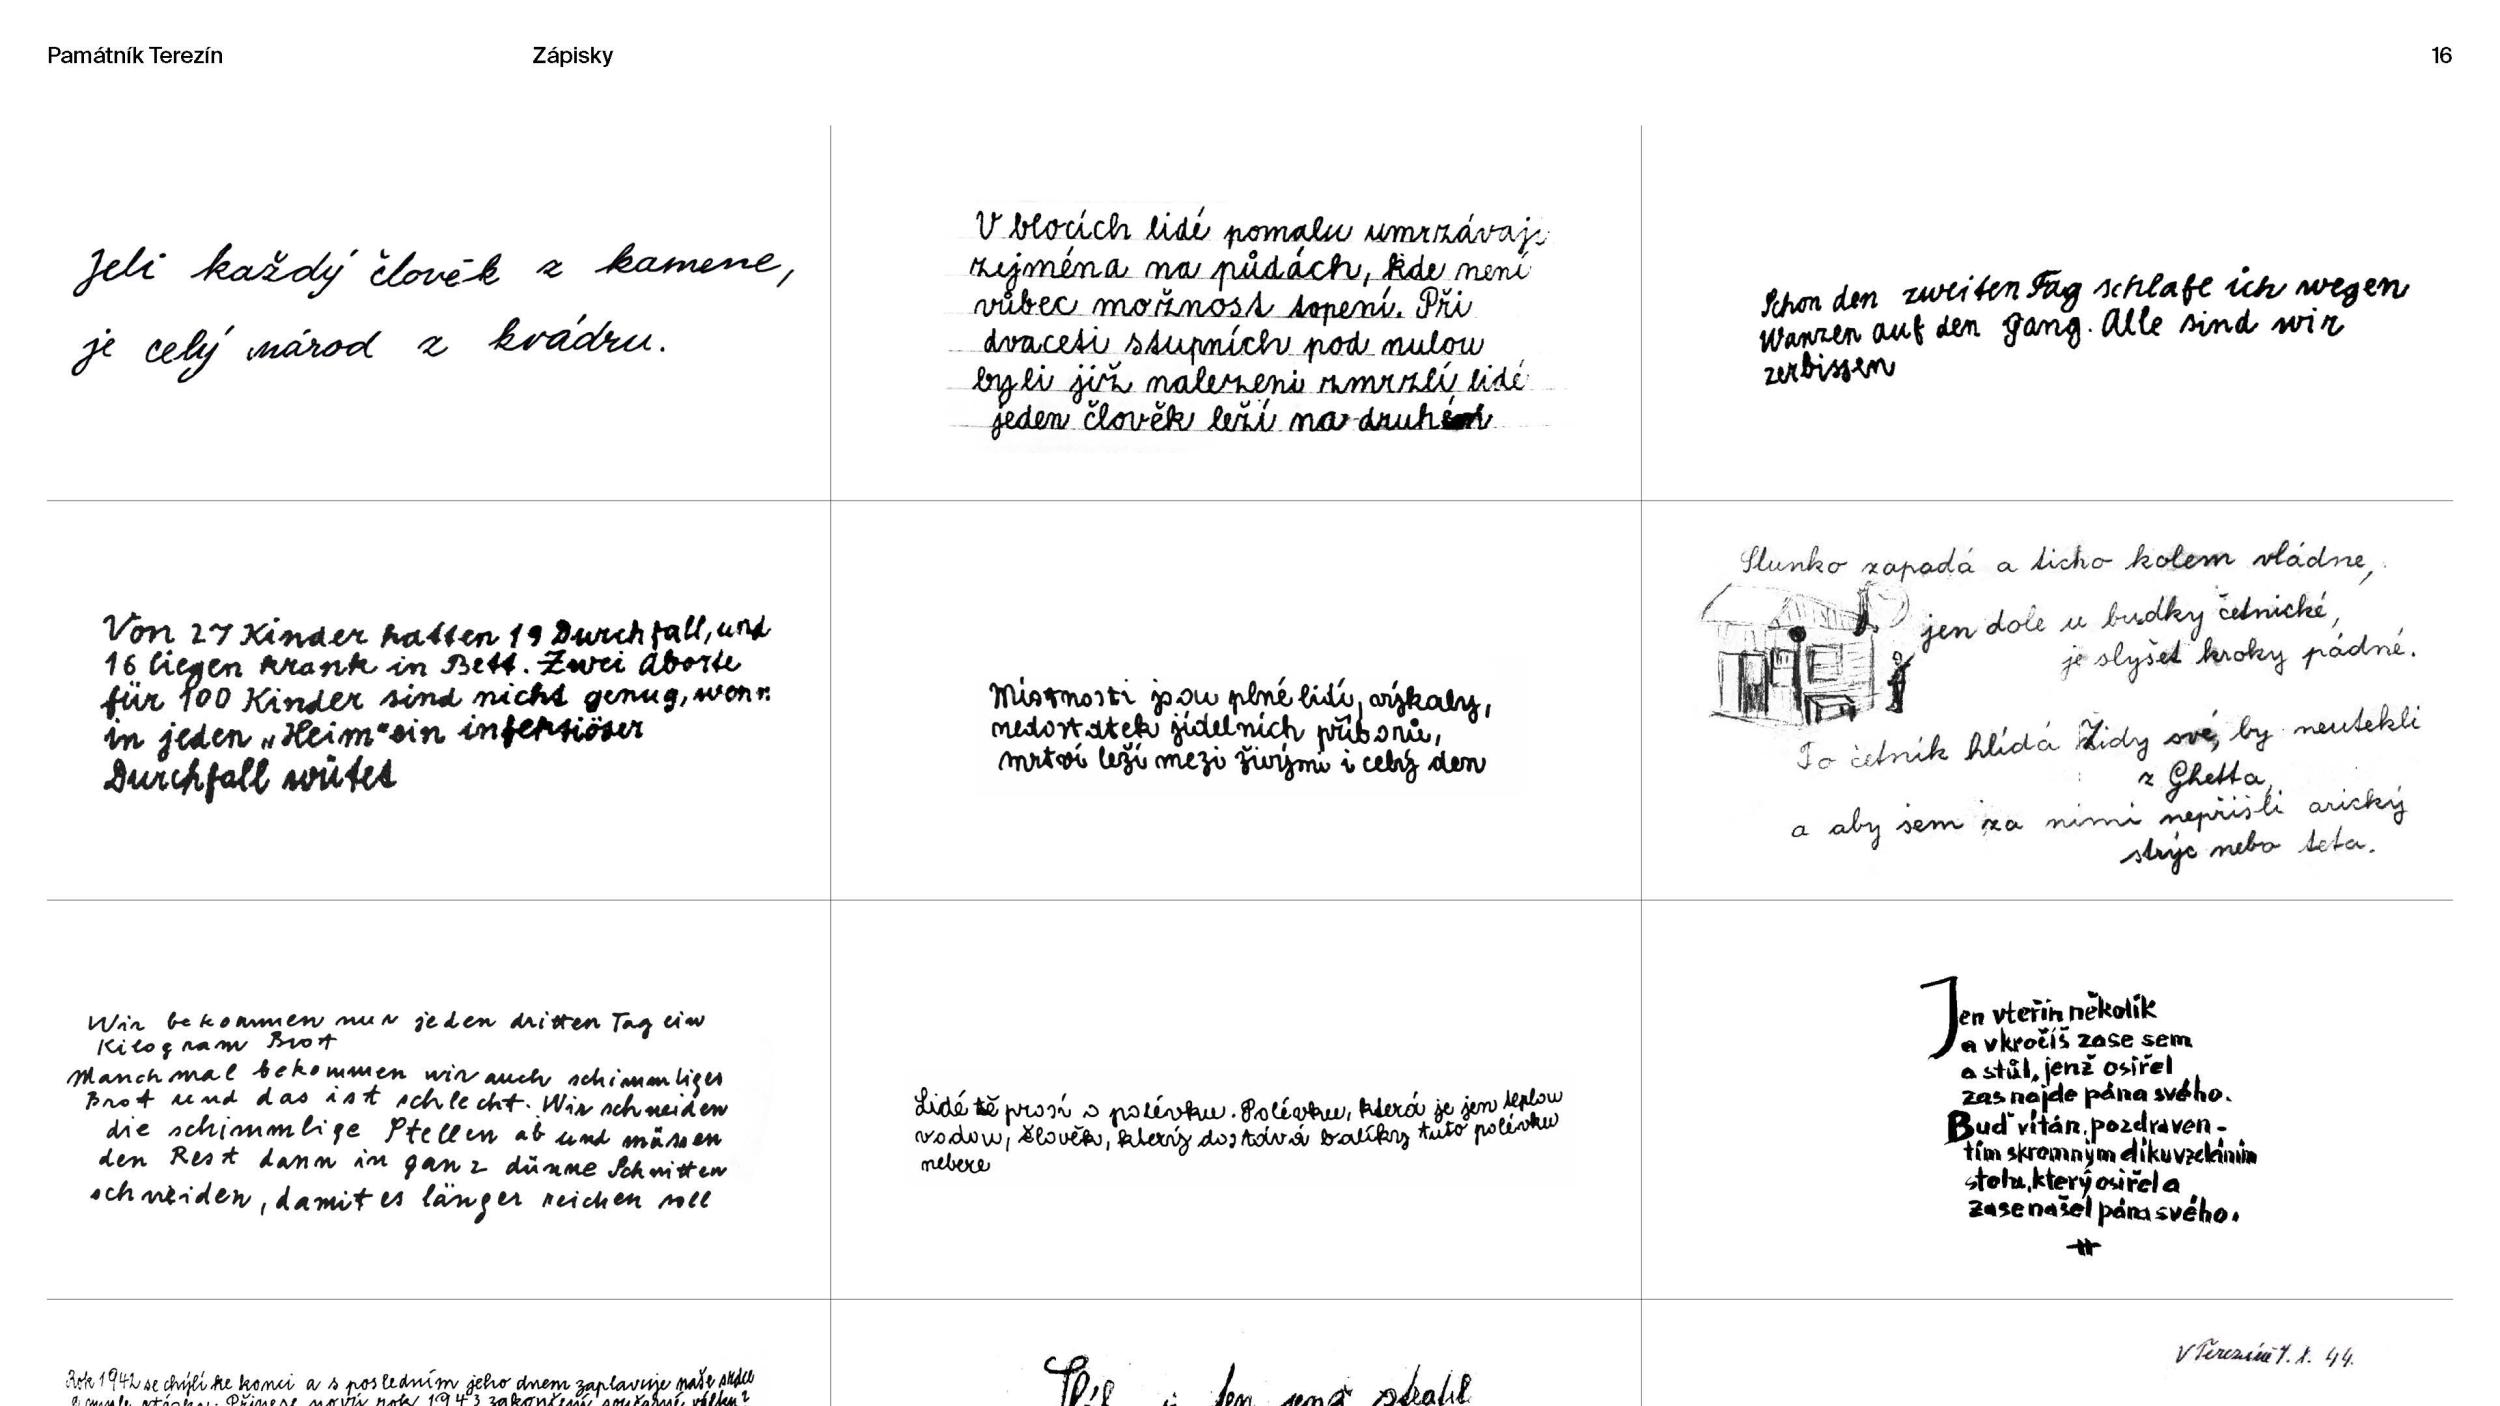 Památník Terezín
Zápisky
16
Jeli každý člověk z kamene,
je celý národ z kvádru.
V blocích lidé pomalu umrzávají
zejména na půdách, kde není
vůbec možnost topení. Při
dvaceti stupních pod nulou
byli již nalezeni zmrzlí lidé
jeden člověk leží na druhém
Schon den zweiten Tag schlafe ich wegen
Wanzen auf den Gang. Alle sind wir
zerbissen
Von 27 Kinder hatten 19 Durchfall, und
16 liegen krank in Bett. Zwei Aborte
für 100 Kinder sind nicht genug, wenn
in jeden „Heim“ ein infektiöser
Durchfall wütet
Místnosti jsou plné lidí, výskaly,
nedostatek jídelních příborů,
mrtví leží mezi živými i celý den
Slunko zapadá a ticho kolem vládne,
jen dole u budky četnické,
je slyšet kroky pádné.
To četník hlídá Židy své, by neutekli
z Ghetta,
a aby sem za nimi nepřišli arický
strýc nebo teta.
Wir bekommen nur jeden dritten Tag ein
Kilogram Brot
Manchmal bekommen wir auch schimmliges
Brot und das ist schlecht. Wir schneiden
die schimmlige Stellen ab und müssen
den Rest dann in ganz dünne Schnitten
schneiden, damit es länger reichen soll
Lidé tě prosí o polévku. Polévku, která je jen teplou
vodou, člověk, který dostává balíky tuto polévku
nebere
Jen vteřin několik
a vkročíš zase sem
a stůl, jenž osiřel
zas najde pána svého.
Buď vítán, pozdraven -
tím skromným díkuvzdáním
stolu, který osiřel a
zase našel pána svého.
Rok 1942 se chýlí ke konci a s posledním jeho dnem zaplavuje naše srdce
otázka: Přinese nový rok 1943 zakončení současné války?
jen
ztratil
V Terezíně 44.